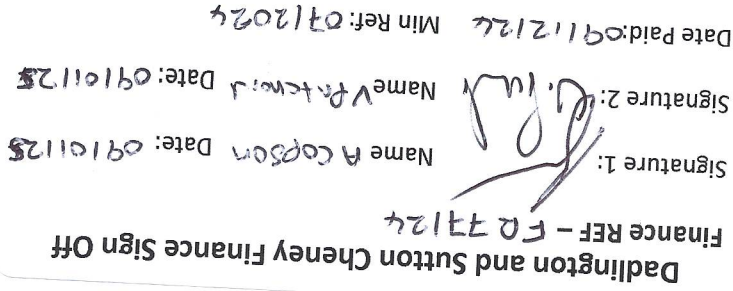 Dadlington and Sutton Cheney Finance Sign Off
Finance REF – FQ 77/24
Signature 1: Name A Copson Date: 09/01/25
Signature 2: Name V Date: 09/01/25
Date Paid: 09/12/24 Min Ref: 07/2024